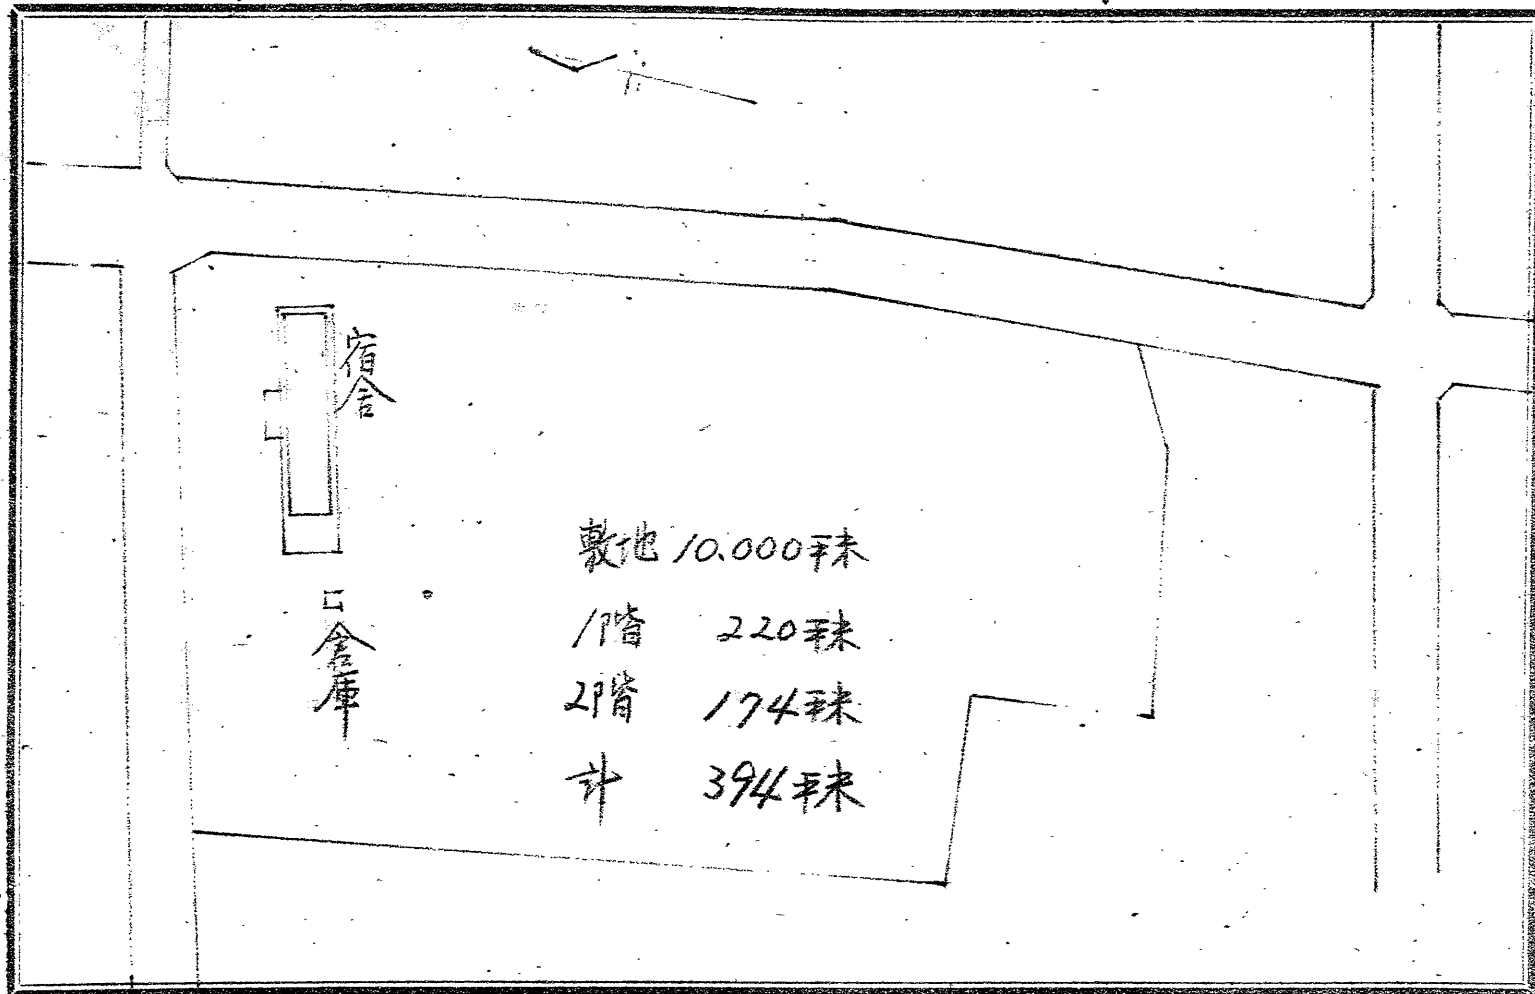 宿舎
倉庫
敷地 10.000平米
1階 220平米
2階 174平米
計 394平米